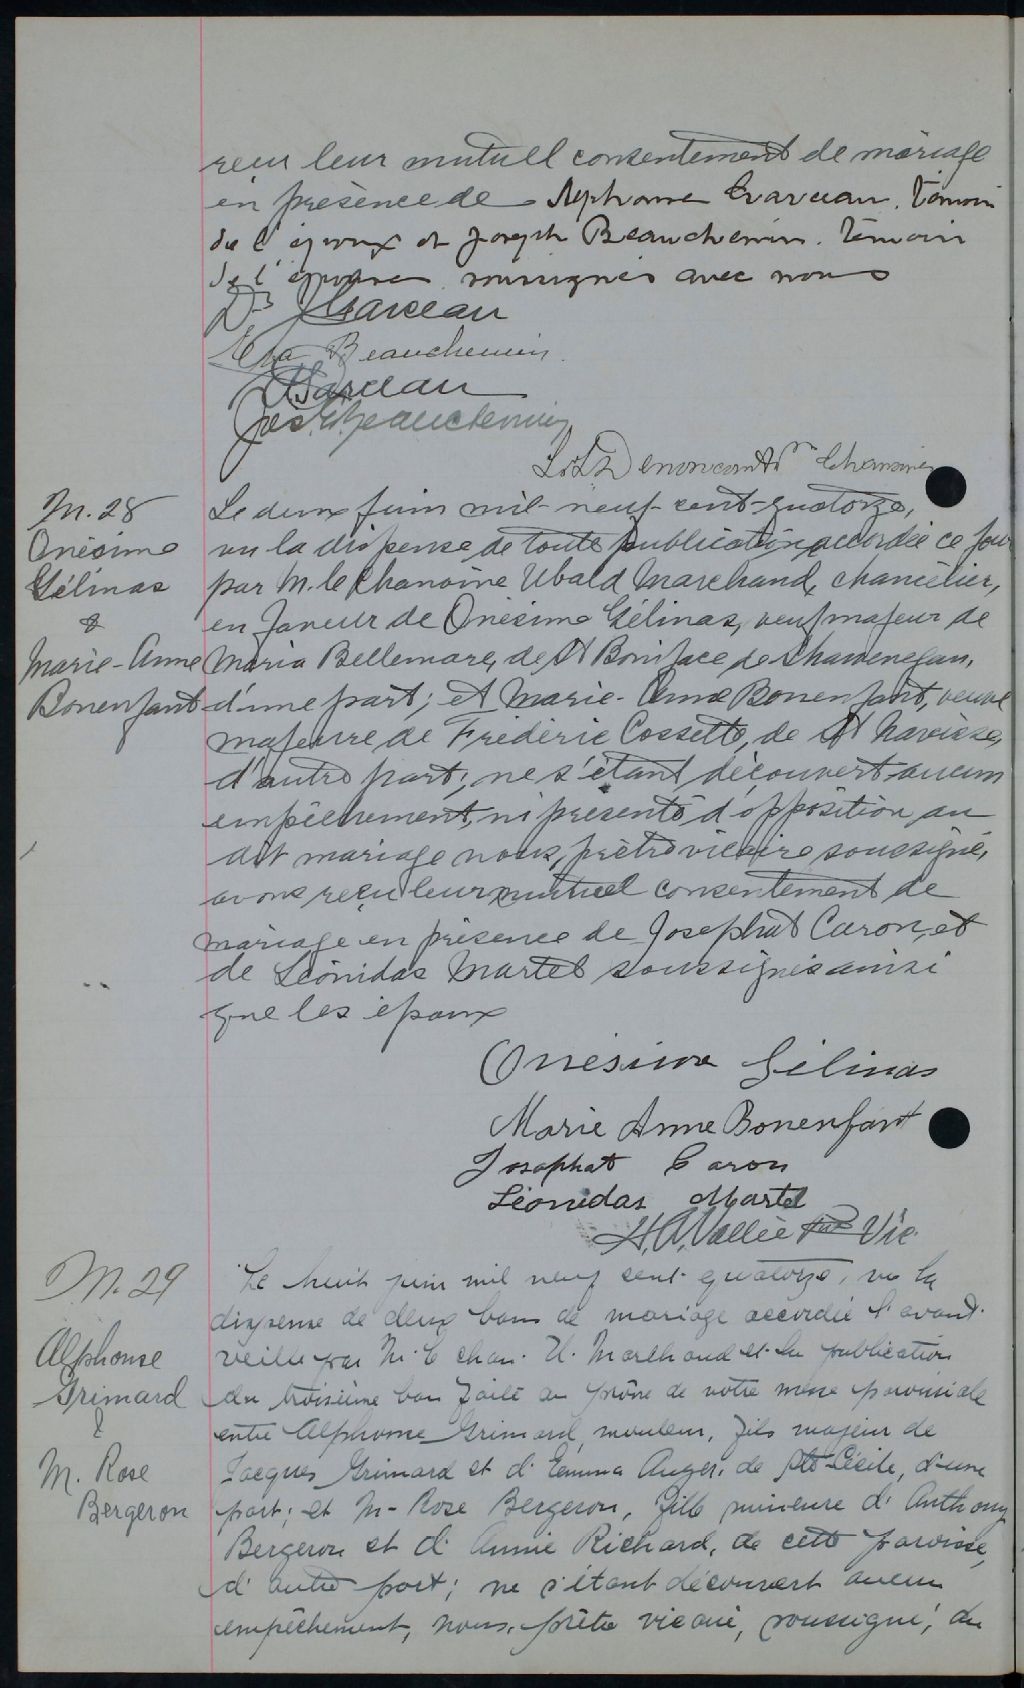 reçu leur mutuel consentement de mariage
en présence de Alphonse Garceau, témoin
de l'époux et Joseph Beauchemin, témoin
de l'épouse soussignés avec nous
Garceau
Beauchemin
Garceau
Jos. Beauchemin
Chanoine
M. 28
Onésime
Gélinas
&
Marie-Anne
Bonenfant
Le deux juin mil-neuf-cent-quatorze,
vu la dispense de toute publication accordée ce jour
par M. le chanoine Ubald Marchand, chancelier,
en faveur de Onésime Gélinas, veuf majeur de
Maria Bellemare, de St Boniface de Shawenegan,
d'une part; et Marie-Anne Bonenfant, veuve
majeure de Frédéric Cossette, de St Narcisse,
d'autre part; ne s'étant découvert aucun
empêchement, ni présenté d'opposition au
dit mariage nous, prêtre vicaire soussigné,
avons reçu leur mutuel consentement de
mariage en présence de Josephat Caron, et
de Léonidas Martel soussignés ainsi
que les époux
Onésime Gélinas
Marie Anne Bonenfant
Josaphat Caron
Léonidas Martel
H. A. Vallée Ptre Vic.
M. 29
Alphonse
Grimard
&
M. Rose
Bergeron
Le huit juin mil neuf cent quatorze, vu la
dispense de deux bans de mariage accordée l'avant-
veille par M. le chan. U. Marchand et la publication
du troisième ban faite au prône de notre messe paroissiale
entre Alphonse Grimard, mouleur, fils majeur de
Jacques Grimard et d'Emma Auger, de Ste-Cécile, d'une
part; et M-Rose Bergeron, fille mineure d'Anthony
Bergeron et d'Annie Richard, de cette paroisse,
d'autre part; ne s'étant découvert aucun
empêchement, nous, prêtre vicaire, soussigné, du